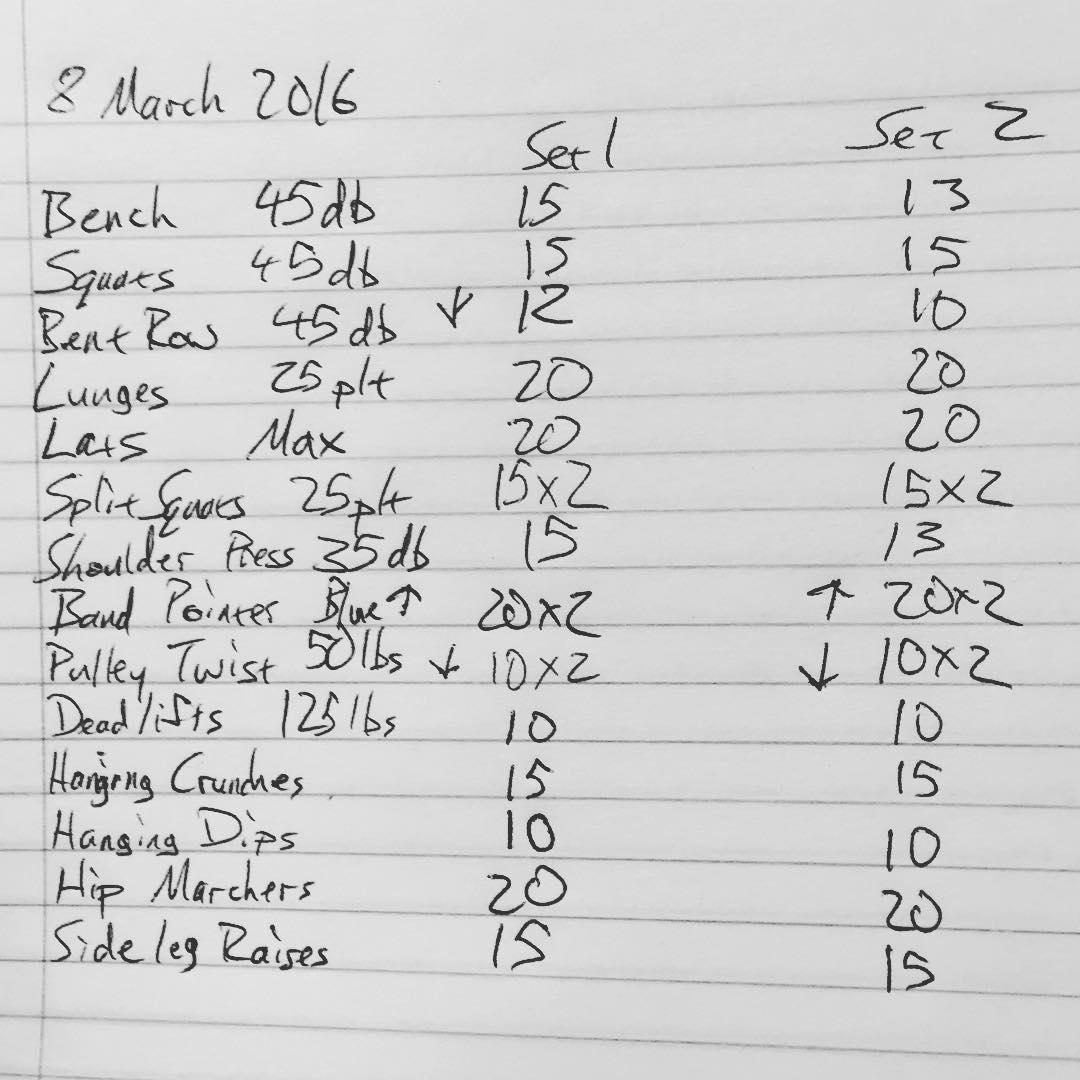 8 March 2016
Set 1 Set 2
Bench 45db 15 13
Squats 45db 15 15
Bent Row 45db ↓ 12 10
Lunges 25plt 20 20
Lats Max 20 20
Split Squats 25plt 15x2 15x2
Shoulder Press 35db 15 13
Band Pointer Blue ↑ 20x2 ↑ 20x2
Pulley Twist 50lbs ↓ 10x2 ↓ 10x2
Deadlifts 125lbs 10 10
Hanging Crunches 15 15
Hanging Dips 10 10
Hip Marchers 20 20
Side leg Raises 15 15